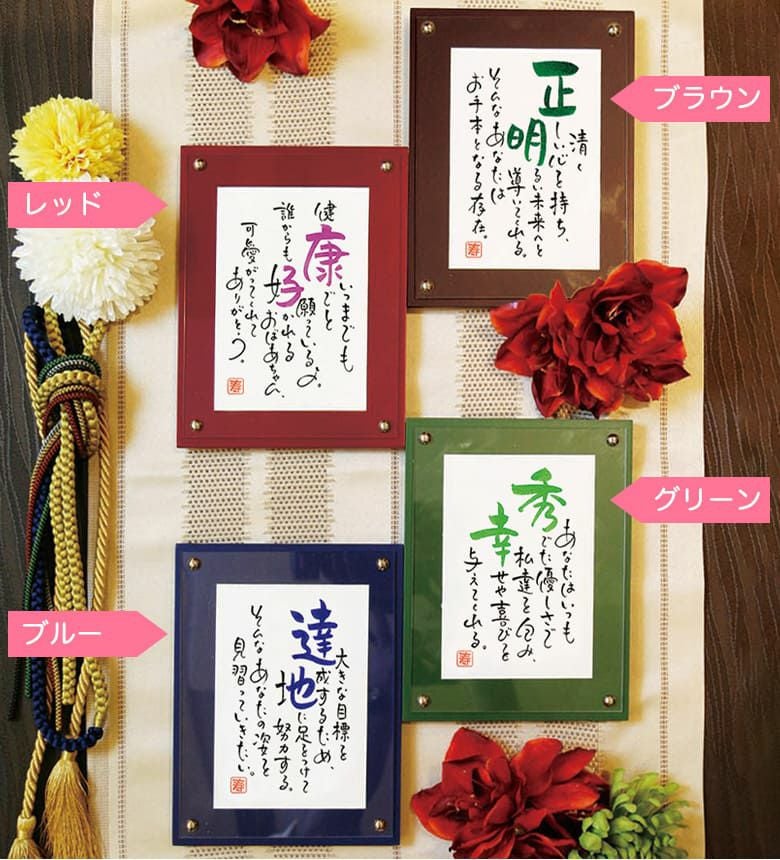 ブラウン
清く
正しい心を持ち、
明るい未来へと
導いてくれる。
そんなあなたは
お手本となる存在。
寿
レッド
いつまでも
健康でと
願っているよ。
誰からも好かれる
おばあちゃん、
可愛がってくれて
ありがとう。
寿
グリーン
あなたはいつも
秀でた優しさで
私達を包み、
幸せや喜びを
与えてくれる。
寿
ブルー
大きな目標を
達成するため、
地に足をつけて
努力する。
そんなあなたの姿を
見習っていきたい。
寿